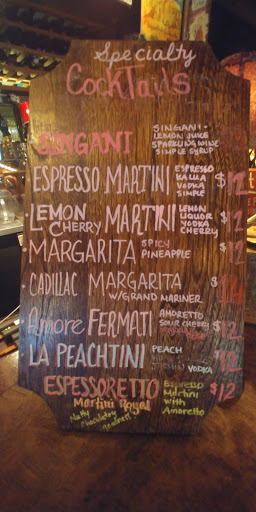 Specialty
Cocktails
SINGANI
SINGANI -
LEMON JUICE
SPARKLING WINE
SIMPLE SYRUP
ESPRESSO MARTINI
ESPRESSO
KALUA
VODKA
SIMPLE
$12
LEMON CHERRY MARTINI
LEMON
LIQUOR
VODKA
CHERRY
$12
MARGARITA SPICY
PINEAPPLE
$12
CADILLAC MARGARITA
W/GRAND MARINER
$14
Amore FERMATI
AMORETTO
SOUR CHERRY
$12
LA PEACHTINI PEACH
VODKA
$12
ESPESSORETTO
Martini Royal
Nutty
Chocolatey
Goodness!
Espresso
Martini
with
Amoretto
$12